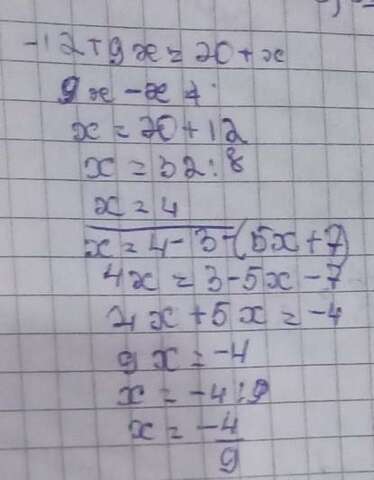 -12+9x=20+x
9x-x+
x=20+12
x=32:8
x=4
x=4-3-(5x+7)
4x=3-5x-7
4x+5x=-4
9x=-4
x=-4:9
x=-4/9